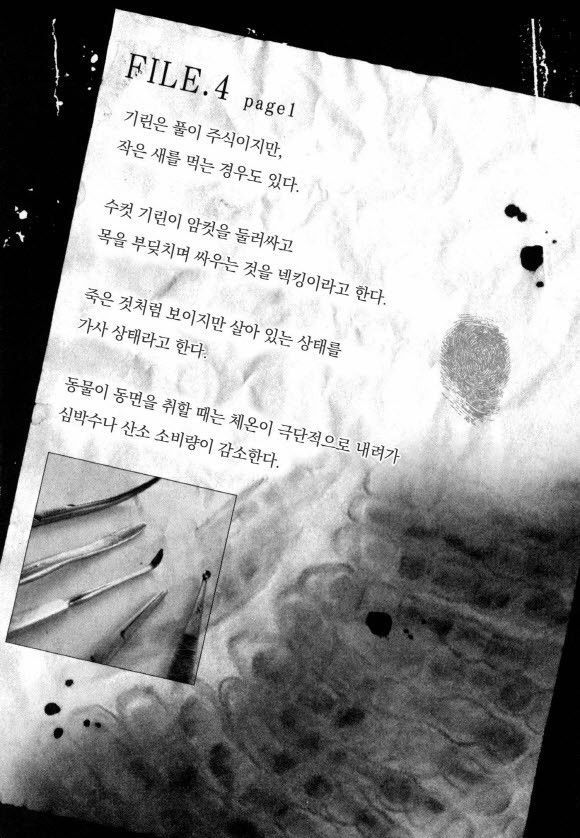 FILE.4 page1
기린은 풀이 주식이지만,
작은 새를 먹는 경우도 있다.
수컷 기린이 암컷을 둘러싸고
목을 부딪치며 싸우는 것을 넥킹이라고 한다.
죽은 것처럼 보이지만 살아 있는 상태를
가사 상태라고 한다.
동물이 동면을 취할 때는 체온이 극단적으로 내려가
심박수나 산소 소비량이 감소한다.